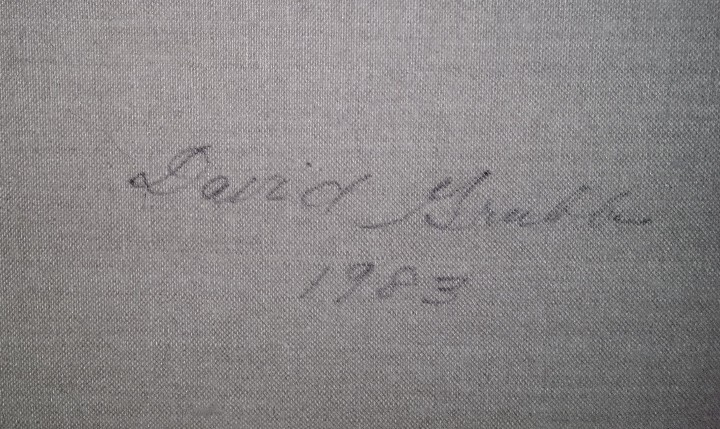 David Grubb
1983